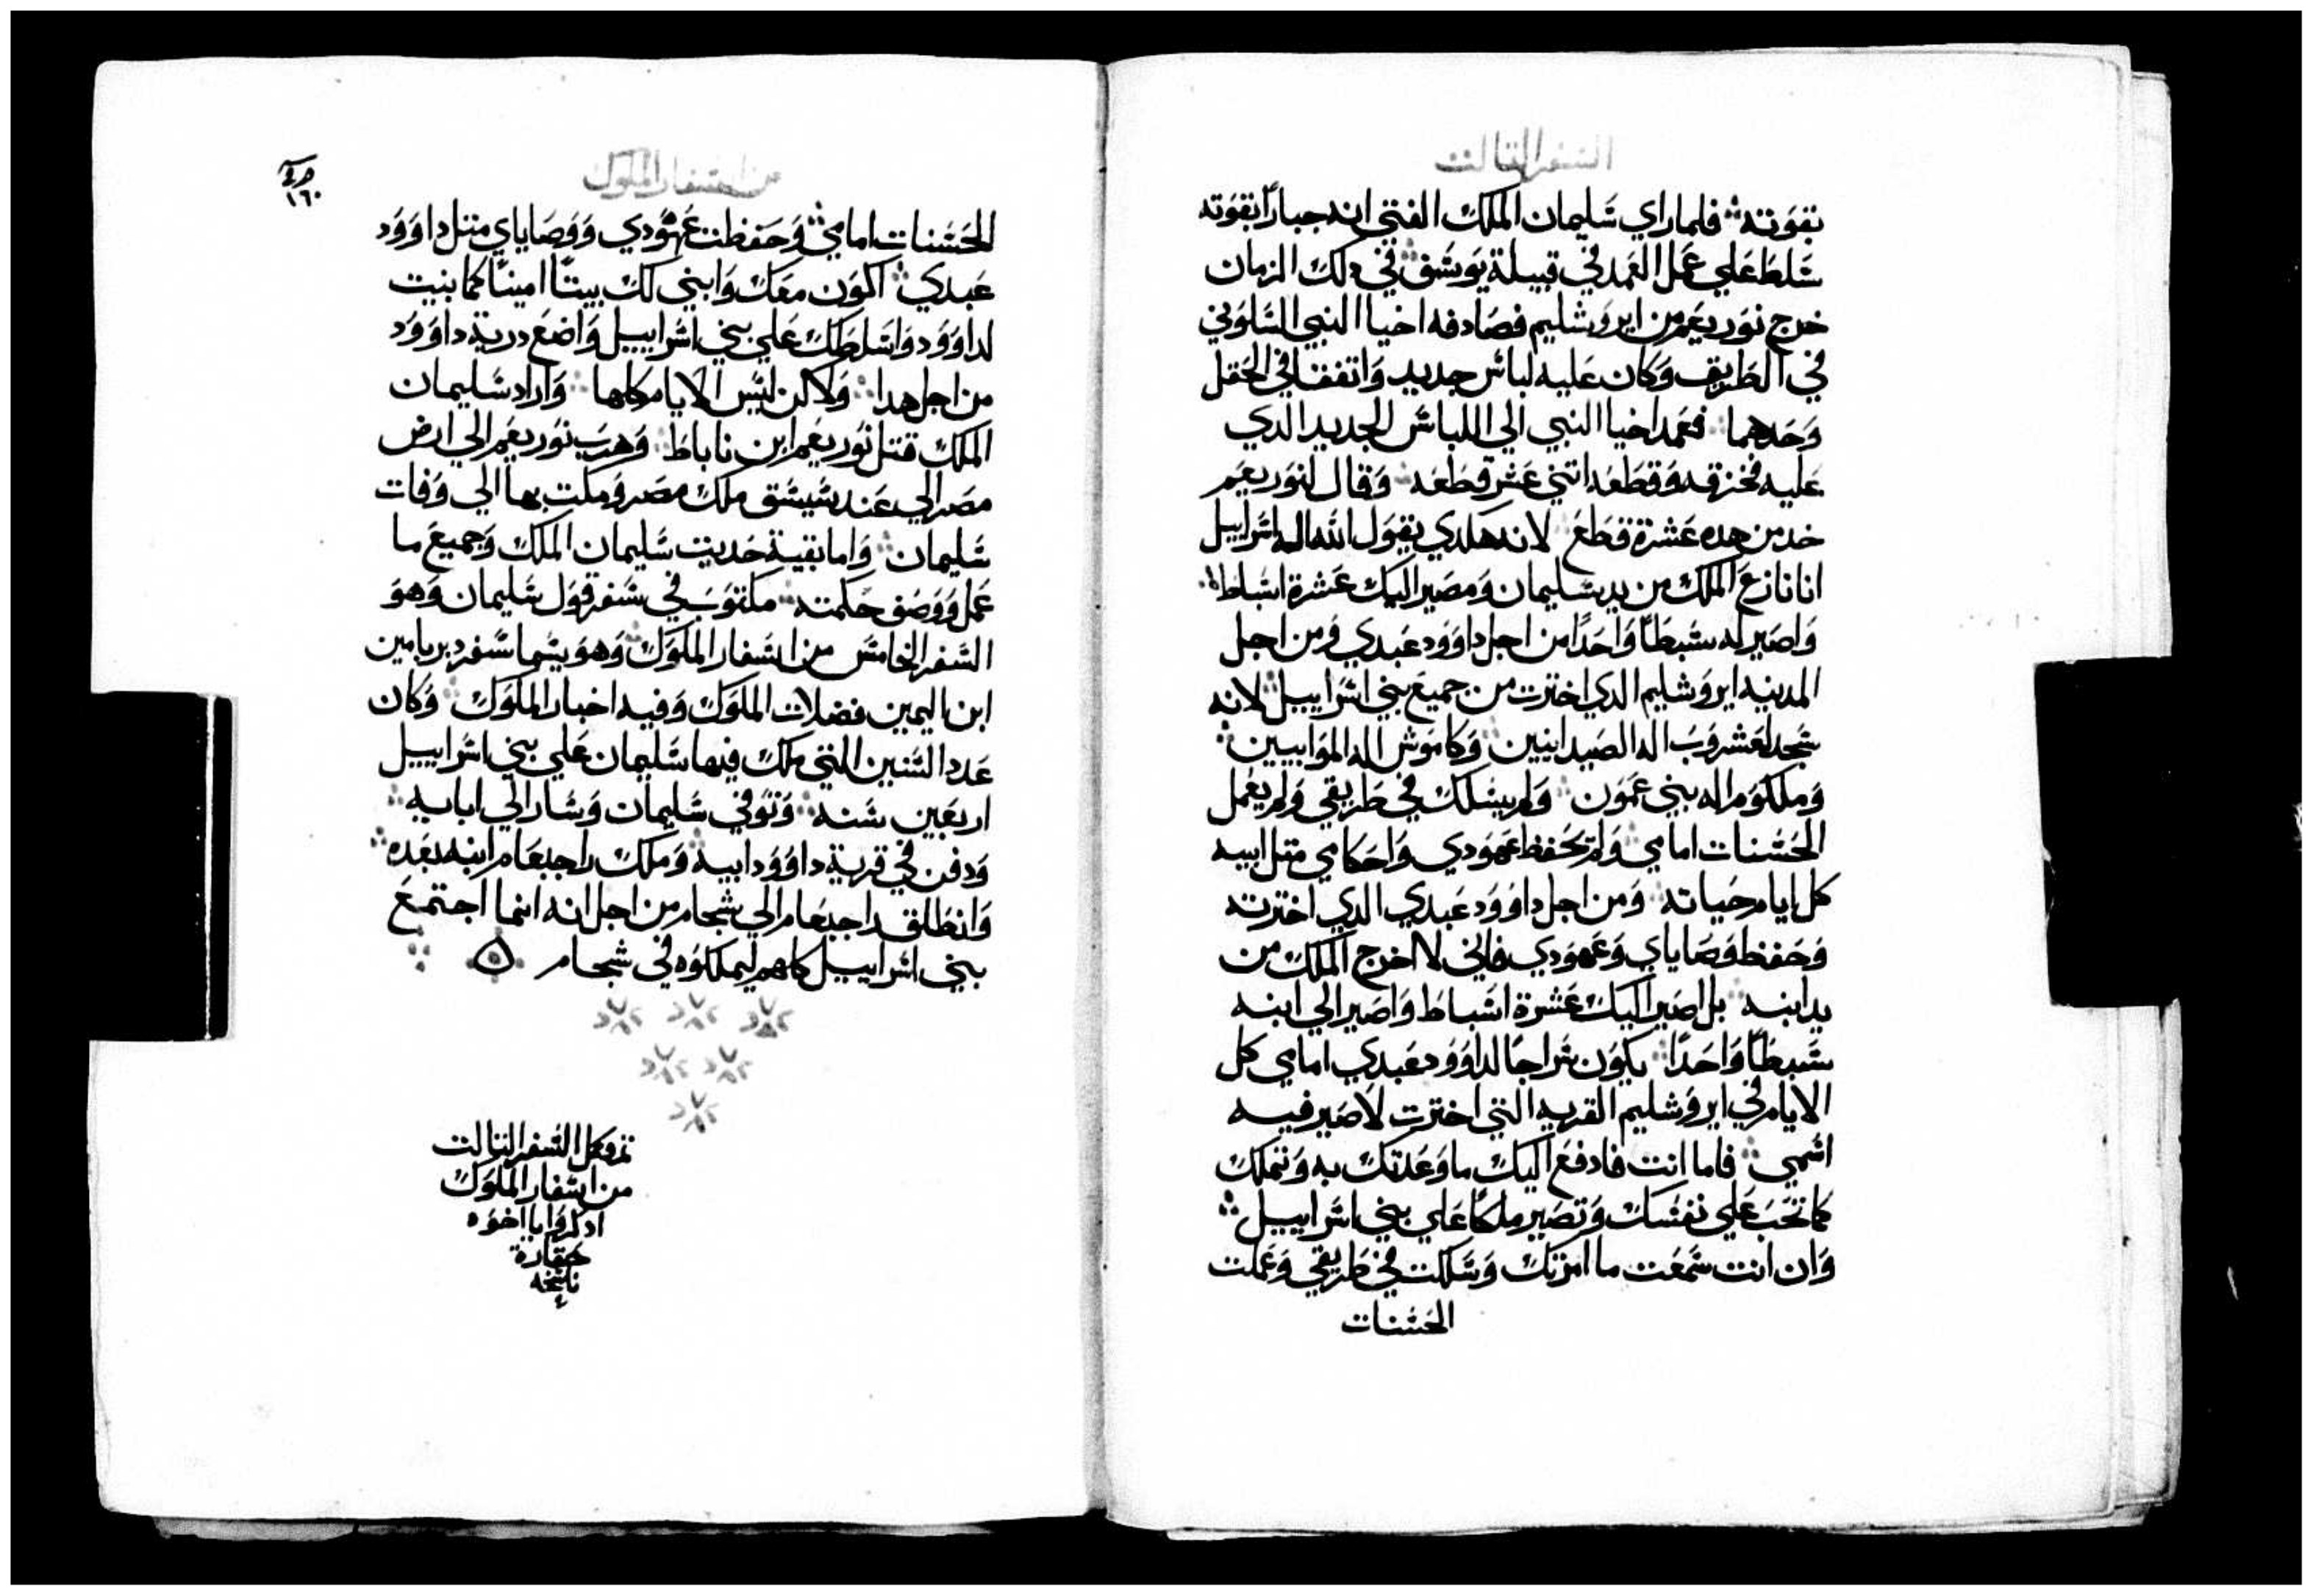 السفر الثالت
بقوته فلما راي سليمان الملك الفتي انه جباراً بقوته
سلط علي عمل العمد في قبيلة يوسف في دلك الزمان
خرج نوريعم من ايروشليم فصادفه اخيا النبي السلوني
في الطريق وكان عليه لباس جديد واتفقا في الحقل
وحدهما فعمد اخيا النبي الي اللباس الجديد الدي
عليه فخزقه وقطعه اتني عشر قطعه وقال لنوريعم
خد من هده عشرة قطع لانه هكدي يقول الله اله اسراييل
انا نازع الملك من يد سليمان ومصير اليك عشرة اسباط
واصير له سبطاً واحداً من اجل داوود عبدي ومن اجل
المدينه ايروشليم الدي اخترت من جميع بني اسراييل لانه
سجد لعشروب اله الصيدانيين وكاموش اله الموابيين
وملكوم اله بني عمون ولم يسلك في طريقي ولم يعمل
الحسنات امامي ولم يحفظ عهودي واحكامي متل ابيه
كل ايام حياته ومن اجل داوود عبدي الدي اخترته
وحفظ وصاياي وعهودي فاني لا اخرج الملك من
يد ابنه بل اصير اليك عشرة اسباط واصير الي ابنه
سبطاً واحداً يكون سراجاً لداوود عبدي امامي كل
الايام في ايروشليم القريه التي اخترت لاصير فيه
اسمي فاما انت فادفع اليك ما وعدتك به وتملك
كما تحب علي نفسك وتصير ملكاً علي بني اسراييل
وان انت سمعت ما امرتك وسلكت في طريقي وعملت
الحسنات
من اسفار الملوك
١٦٠
الحسنات امامي وحفظت عهودي ووصاياي متل داوود
عبدي اكون معك وابني لك بيتاً اميناً كما بنيت
لداوود واسلطك علي بني اسراييل واضع درية داوود
من اجل هدا ولاكن ليس الايام كلها واراد سليمان
الملك قتل نوريعم ابن ناباط وهرب نوريعم الي ارض
مصر الي عند شيشق ملك مصر ومكت بها الي وفات
سليمان واما بقية حديت سليمان الملك وجميع ما
عمل ووصف حكمته مكتوب في سفر قول سليمان وهو
السفر الخامس من اسفار الملوك وهو يسما سفر دبريامين
ابن اليمين فضلات الملوك وفيه اخبار الملوك وكان
عدد السنين التي ملك فيها سليمان علي بني اسراييل
اربعين سنه وتوفي سليمان وسار الي ابايه
ودفن في قرية داوود ابيه وملك راجبعام ابنه بعده
وانطلق راجبعام الي شجام من اجل انه انما اجتمع
بني اسراييل كلهم ليملكوه في شجام
تم وكمل السفر التالت
من اسفار الملوك
ادكروا يا اخوه
حقارة
ناسخه